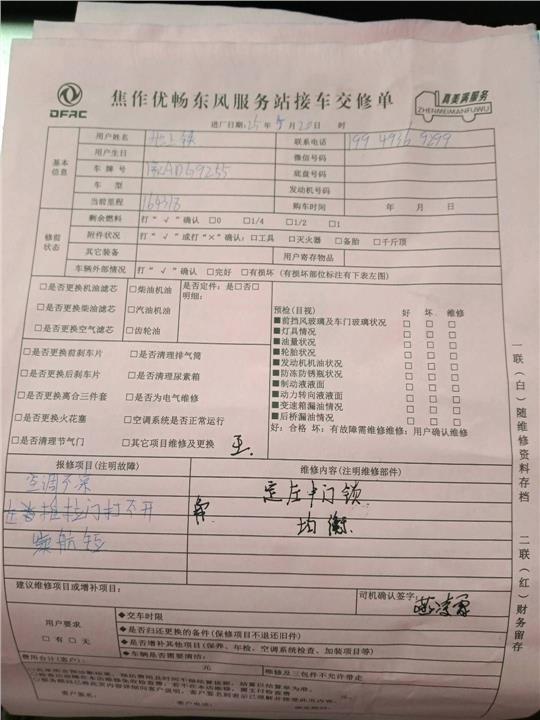 DFAC
焦作优畅东风服务站接车交修单
真美满服务
ZHENMEIMANFUWU
进厂日期: 25 年 月 20 日 时
基本信息
用户姓名
联系电话 199 4936 9299
用户生日
微信号码
车 牌 号 D69255
底盘号码
车 型
发动机号码
当前里程 164313
购车时间 年 月 日
修前状态
剩余燃料 打“√”确认 □0 □1/4 □1/2 □1
附件状况 打“√”或打“×”确认: □工具 □灭火器 □备胎 □千斤顶
其它装备 用户寄存物品
车辆外部情况 打“√”确认 □完好 □有损坏 (有损坏部位标注有下表左图)
□是否更换机油滤芯 □柴油机油 是否定件: 是□否□
明细:
□是否更换柴油滤芯 □汽油机油
□是否更换空气滤芯 □齿轮油
□是否更换前刹车片 □是否清理排气筒
□是否更换后刹车片 □是否清理尿素箱
□是否更换离合三件套 □是否为电气维修
□是否更换火花塞 □空调系统是否正常运行
□是否清理节气门 □其它项目维修及更换
预检(目视) 好 坏 维修
■前挡风玻璃及车门玻璃状况 □ □ □
■灯具情况 □ □ □
■油量状况 □ □ □
■轮胎状况 □ □ □
■发动机机油状况 □ □ □
■防冻防锈瓶状况 □ □ □
■制动液液面 □ □ □
■动力转向液液面 □ □ □
■变速箱漏油情况 □ □ □
■后桥漏油情况 □ □ □
好: 合格 坏: 有故障需维修维修: 用户确认维修
报修项目(注明故障)
维修内容(注明维修部件)
空调不凉
拉门打不开
续航短
定左中门锁
均衡
建议维修项目或增补项目:
司机确认签字:
用户要求
□ 有 □ 无
◆交车时限
◆是否归还更换的备件(保修项目不退还旧件)
◆是否增补其他项目(保养、年检、空调系统检查、加装项目等)
◆车辆是否需要清结:
费用合计(客户): 元
维修及三包件不允许带走
客户签名:
客户电话:
一联(白)随维修资料存档 二联(红)财务留存